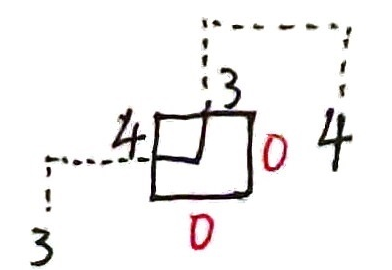 3
4 0 4
3 0